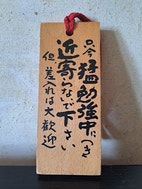 只今猛勉強中につき
近寄らないで下さい
但し差入れは大歓迎